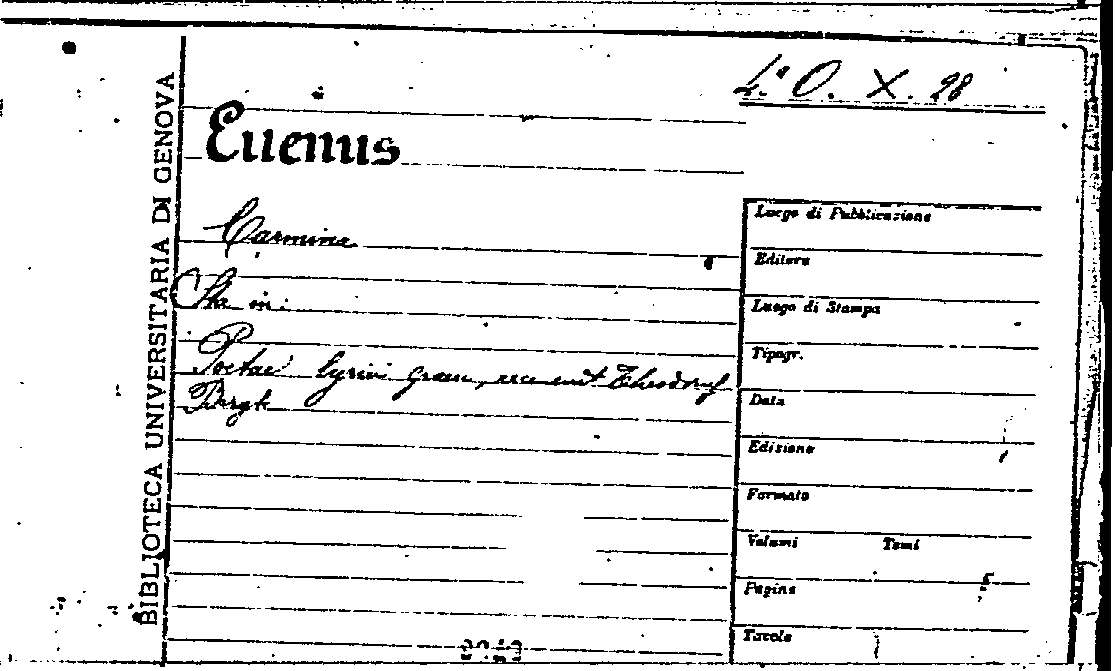 4.° O. X. 28
BIBLIOTECA UNIVERSITARIA DI GENOVA
Euenus
Carmina
Sta in:
Poetae lyrici graeci, recensuit Theodorus
Bergk
Luogo di Pubblicazione
Editore
Luogo di Stampa
Tipogr.
Data
Edizione
Formato
Volumi Tomi
Pagine
Tavole